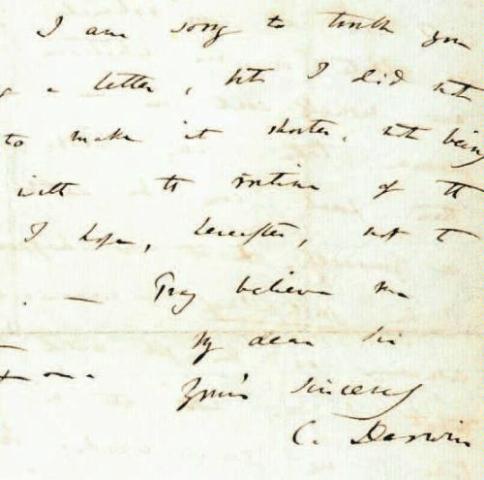 I am sorry to trouble you
a letter, but I did not
to make it shorter, not being
with the routine of the
I hope, hereafter, not to
. — Pray believe me
My dear Sir
Yours sincerely
C. Darwin